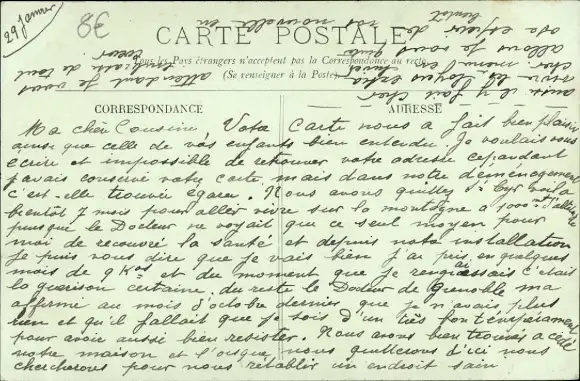 29 Janvier
8€
CARTE POSTALE
Tous les Pays étrangers n'acceptent pas la Correspondance au recto
(Se renseigner à la Poste)
CORRESPONDANCE
ADRESSE
Ma chère Cousine, Votre Carte nous a fait bien plaisir
ainsi que celle de vos enfants bien entendu. Je voulais vous
écrire et impossible de retrouver votre adresse cependant
j'avais conservé votre carte mais dans notre déménagement
c'est-elle trouvée égarée. Nous avons quittez voilà
bientôt 7 mois pour aller vivre sur la montagne a 1000 mt d'altitude
puisque le Docteur ne voyait que ce seul moyen pour
moi de recouvré la santé et depuis notre installation
je puis vous dire que je vais bien j'ai pris en quelques
mois de 9 Kos et du moment que je c'était
la guérison certaine. du reste le Docteur de Grenoble ma
affirmé au mois d'octobre dernier que je n'avais plus
rien et qu'il fallait que je sois d'un très fort tempérament
pour avoir aussi bien resister. Nous avons bien trouvés a cédé
notre maison et lorsque nous quitterons d'ici nous
chercherons pour nous rétablir un endroit sain
aussi il y fait cher
vivre les loyers
cher même
allons je vous quitte
dans espoir de
vos nouvelles en
bientôt
attendant je vous
embrasse de tout
coeur